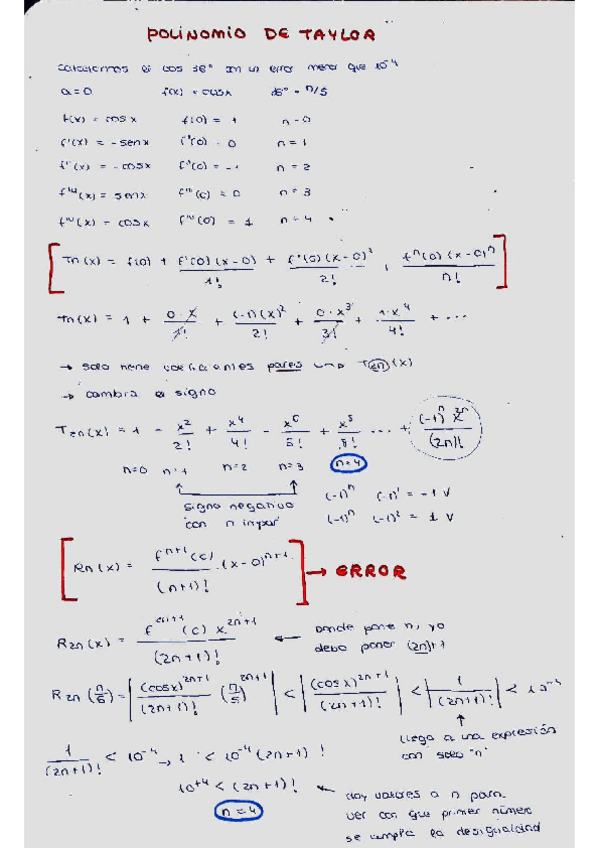 POLINOMIO DE TAYLOR
Calculemos el cos 36° con un error menor que 10⁻⁴
a=0 f(x) = cosx 36° = π/5
f(x) = cosx f(0) = 1 n=0
f'(x) = -senx f'(0) = 0 n=1
f''(x) = -cosx f''(0) = -1 n=2
f'''(x) = senx f'''(0) = 0 n=3
f^IV(x) = cosx f^IV(0) = 1 n=4
Tn(x) = f(0) + f'(0)(x-0)/1! + f''(0)(x-0)²/2! , fⁿ(0)(x-0)ⁿ/n!
Tn(x) = 1 + 0·x/1! + (-1)(x)²/2! + 0·x³/3! + 1·x⁴/4! + ...
→ solo tiene variantes pares T(2n)(x)
→ cambia el signo
T2n(x) = 1 - x²/2! + x⁴/4! - x⁶/6! + x⁸/8! ... + (-1)ⁿ x²ⁿ/(2n)!
n=0 n=1 n=2 n=3 n=4
signo negativo
con n impar
(-1)ⁿ (-1)¹ = -1 V
(-1)ⁿ (-1)² = 1 V
Rn(x) = fⁿ⁺¹(c)/(n+1)! · (x-0)ⁿ⁺¹ → ERROR
R2n(x) = f²ⁿ⁺¹(c) x²ⁿ⁺¹/(2n+1)! ← Donde pone n, yo
debo poner (2n)+1
R2n(π/5) = |(cosx)²ⁿ⁺¹/(2n+1)! (π/5)²ⁿ⁺¹| < |(cosx)²ⁿ⁺¹/(2n+1)!| < |1/(2n+1)!| < 10⁻⁴
llego a una expresión
con solo "n"
1/(2n+1)! < 10⁻⁴ → 1 < 10⁻⁴(2n+1)!
10⁺⁴ < (2n+1)! ← doy valores a n para
n=4 ver con que primer número
se cumple la desigualdad